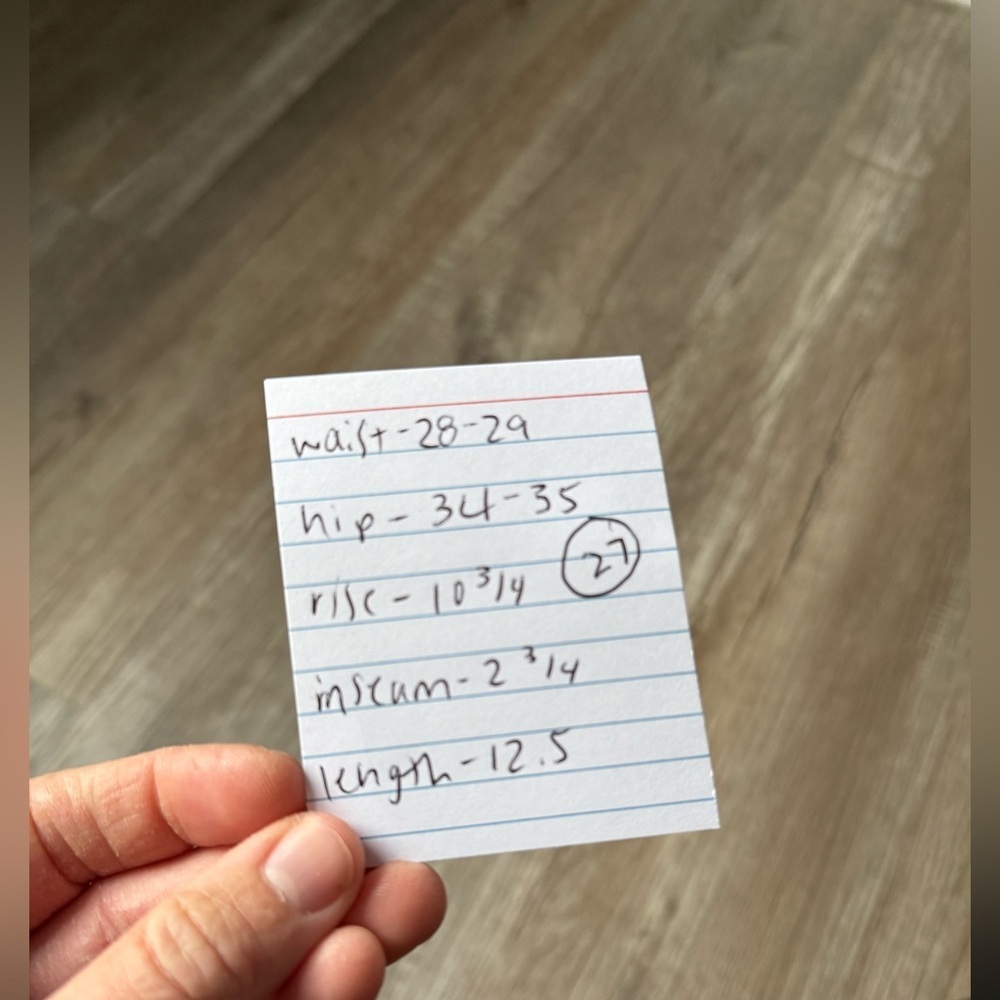 waist - 28-29
hip - 34-35
27
rise - 10 3/4
inseam - 2 3/4
length - 12.5